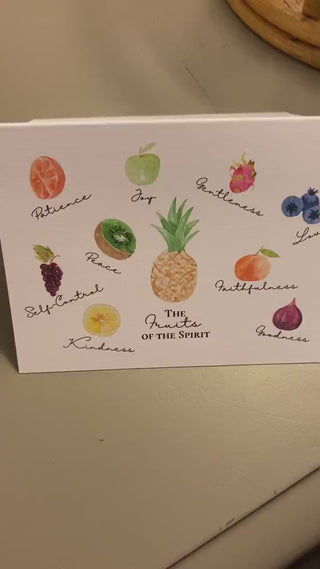 Patience
Joy
Gentleness
Lov
Peace
Self-Control
Faithfulness
Kindness
The
Fruits
of the Spirit
Goodness